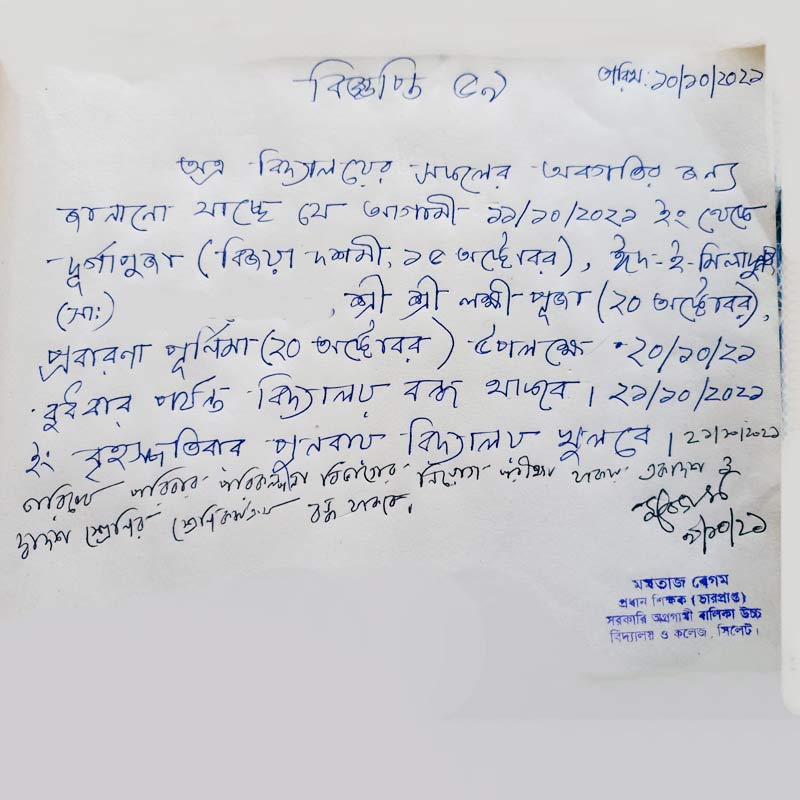 বিজ্ঞপ্তি ৫৯
তারিখ: ১০/১০/২০২১
অত্র বিদ্যালয়ের সকলের অবগতির জন্য
জানানো যাচ্ছে যে আগামী ১১/১০/২০২১ ইং থেকে
দূর্গাপুজা (বিজয়া দশমী, ১৫ অক্টোবর), ঈদ-ই-মিলাদুন্নবী
(সা:) , শ্রী শ্রী লক্ষী পূজা (২০ অক্টোবর),
প্রবারনা পূর্ণিমা (২০ অক্টোবর) উপলক্ষে ২০/১০/২১
বুধবার পর্যন্ত বিদ্যালয় বন্ধ থাকবে। ২১/১০/২০২১
ইং বৃহস্পতিবার পুনরায় বিদ্যালয় খুলবে। ২১/১০/২০২১
তারিখে পরিবার পরিকল্পনা বিভাগের নিয়োগ পরীক্ষা থাকায় একাদশ ও
দ্বাদশ শ্রেণির শ্রেণিকার্যক্রম বন্ধ থাকবে।
১০/১০/২১
মমতাজ বেগম
প্রধান শিক্ষক (ভারপ্রাপ্ত)
সরকারি অগ্রগামী বালিকা উচ্চ
বিদ্যালয় ও কলেজ, সিলেট।